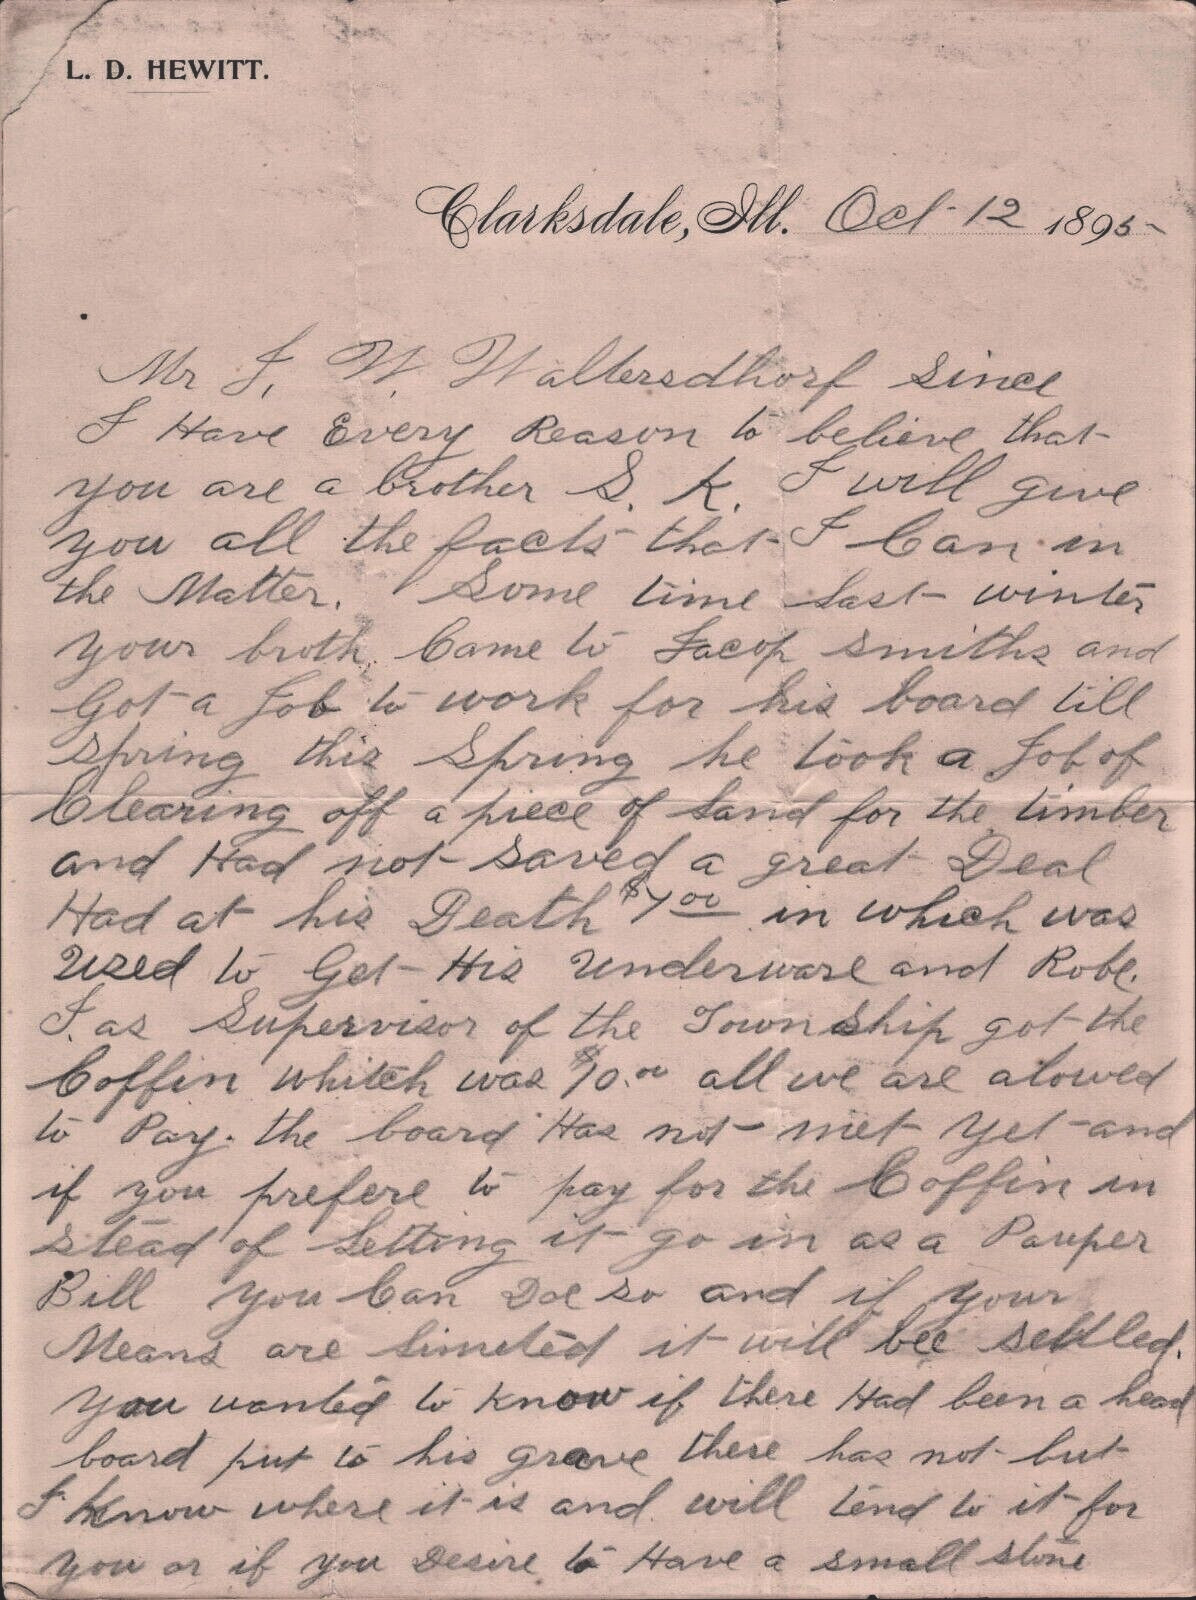 L. D. HEWITT.
Clarksdale, Ill. Oct 12 1895
Mr J. W. Waltersdhorf Since
I Have Every Reason to believe that
you are a brother S. K. I will give
you all the facts that I Can in
the Matter. Some time last winter
your broth. Came to Jacop smiths and
Got a Job to work for his board till
spring this Spring he took a Job of
Clearing off a piece of land for the timber
and Had not saved a great Deal
Had at his Death $7.00 in which was
Used to Get His Underware and Robe.
I as Supervisor of the Town Ship got the
Coffin whitch was $10.00 all we are alowed
to Pay. the board Has not met yet and
if you prefere to pay for the Coffin in
stead of letting it go in as a Pauper
Bill you Can Doe so and if your
Means are limeted it will bee settled.
You wanted to know if there Had been a head
board put to his grave there has not but
I know where it is and will tend to it for
you or if you Desire to Have a small stone